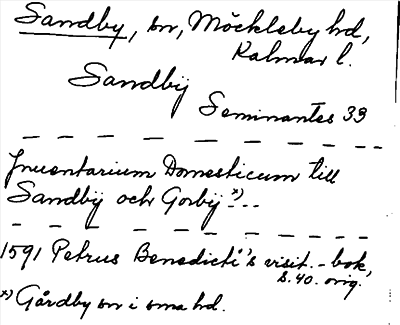 Sandby, sn, Möckleby hd,
Kalmar l.
Sandbÿ
Seminantes 33
Inuentarium Domesticum till
Sandbÿ och Gorbÿ x)..
1591 Petrus Benedicti's visit.-bok,
s.40. orig.
x) Gårdby sn i sma hd.